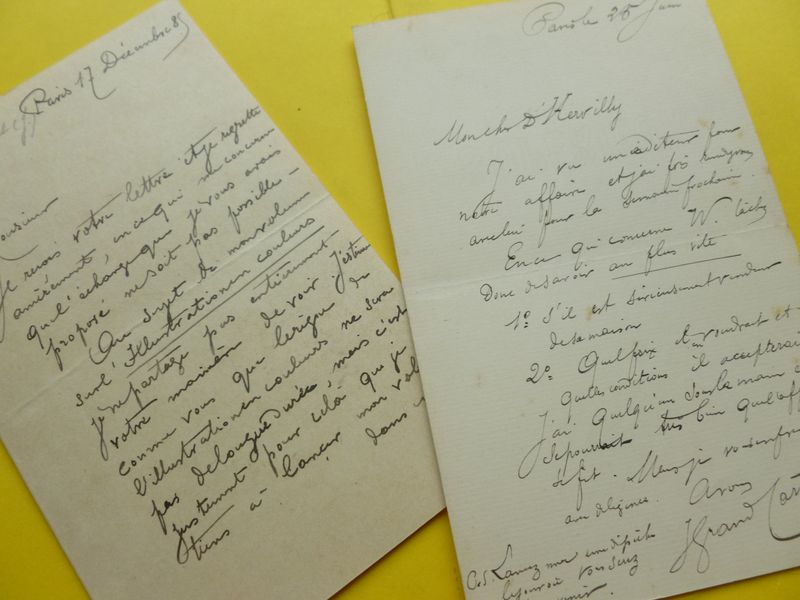 Paris 17 Décembre 85
Monsieur
Je reçois votre lettre et je regrette
amèrement, en ce qui me concerne
qu'l'échange que je vous avais
proposé ne soit pas possible -
Au sujet de mon volume
sur l'Illustration en couleurs
je ne partage pas entièrement
votre manière de voir J'estime
comme vous que le règne de
l'illustration en couleurs ne sera
pas de longue durée, mais c'est
justement pour cela que je
tiens à lancer mon vol
dans
Paris le 25 Juin
Mon cher D'Hervilly
J'ai vu un éditeur pour
notre affaire et j'ai pris rendez vous
avec lui pour la semaine prochaine.
En ce qui concerne W. tâchez
Donc de savoir au plus vite
1º S'il est sérieusement vendeur
de sa maison
2º Quel prix il en voudrait et
quelles conditions il accepterait
J'ai quelqu'un sous la main
se pourrait très bien que l'aff
se fit. Mais je vous enfre
diligence. A vous
J Grand Car
P.S. Lancez moi une dépêche
le jour où vous serez